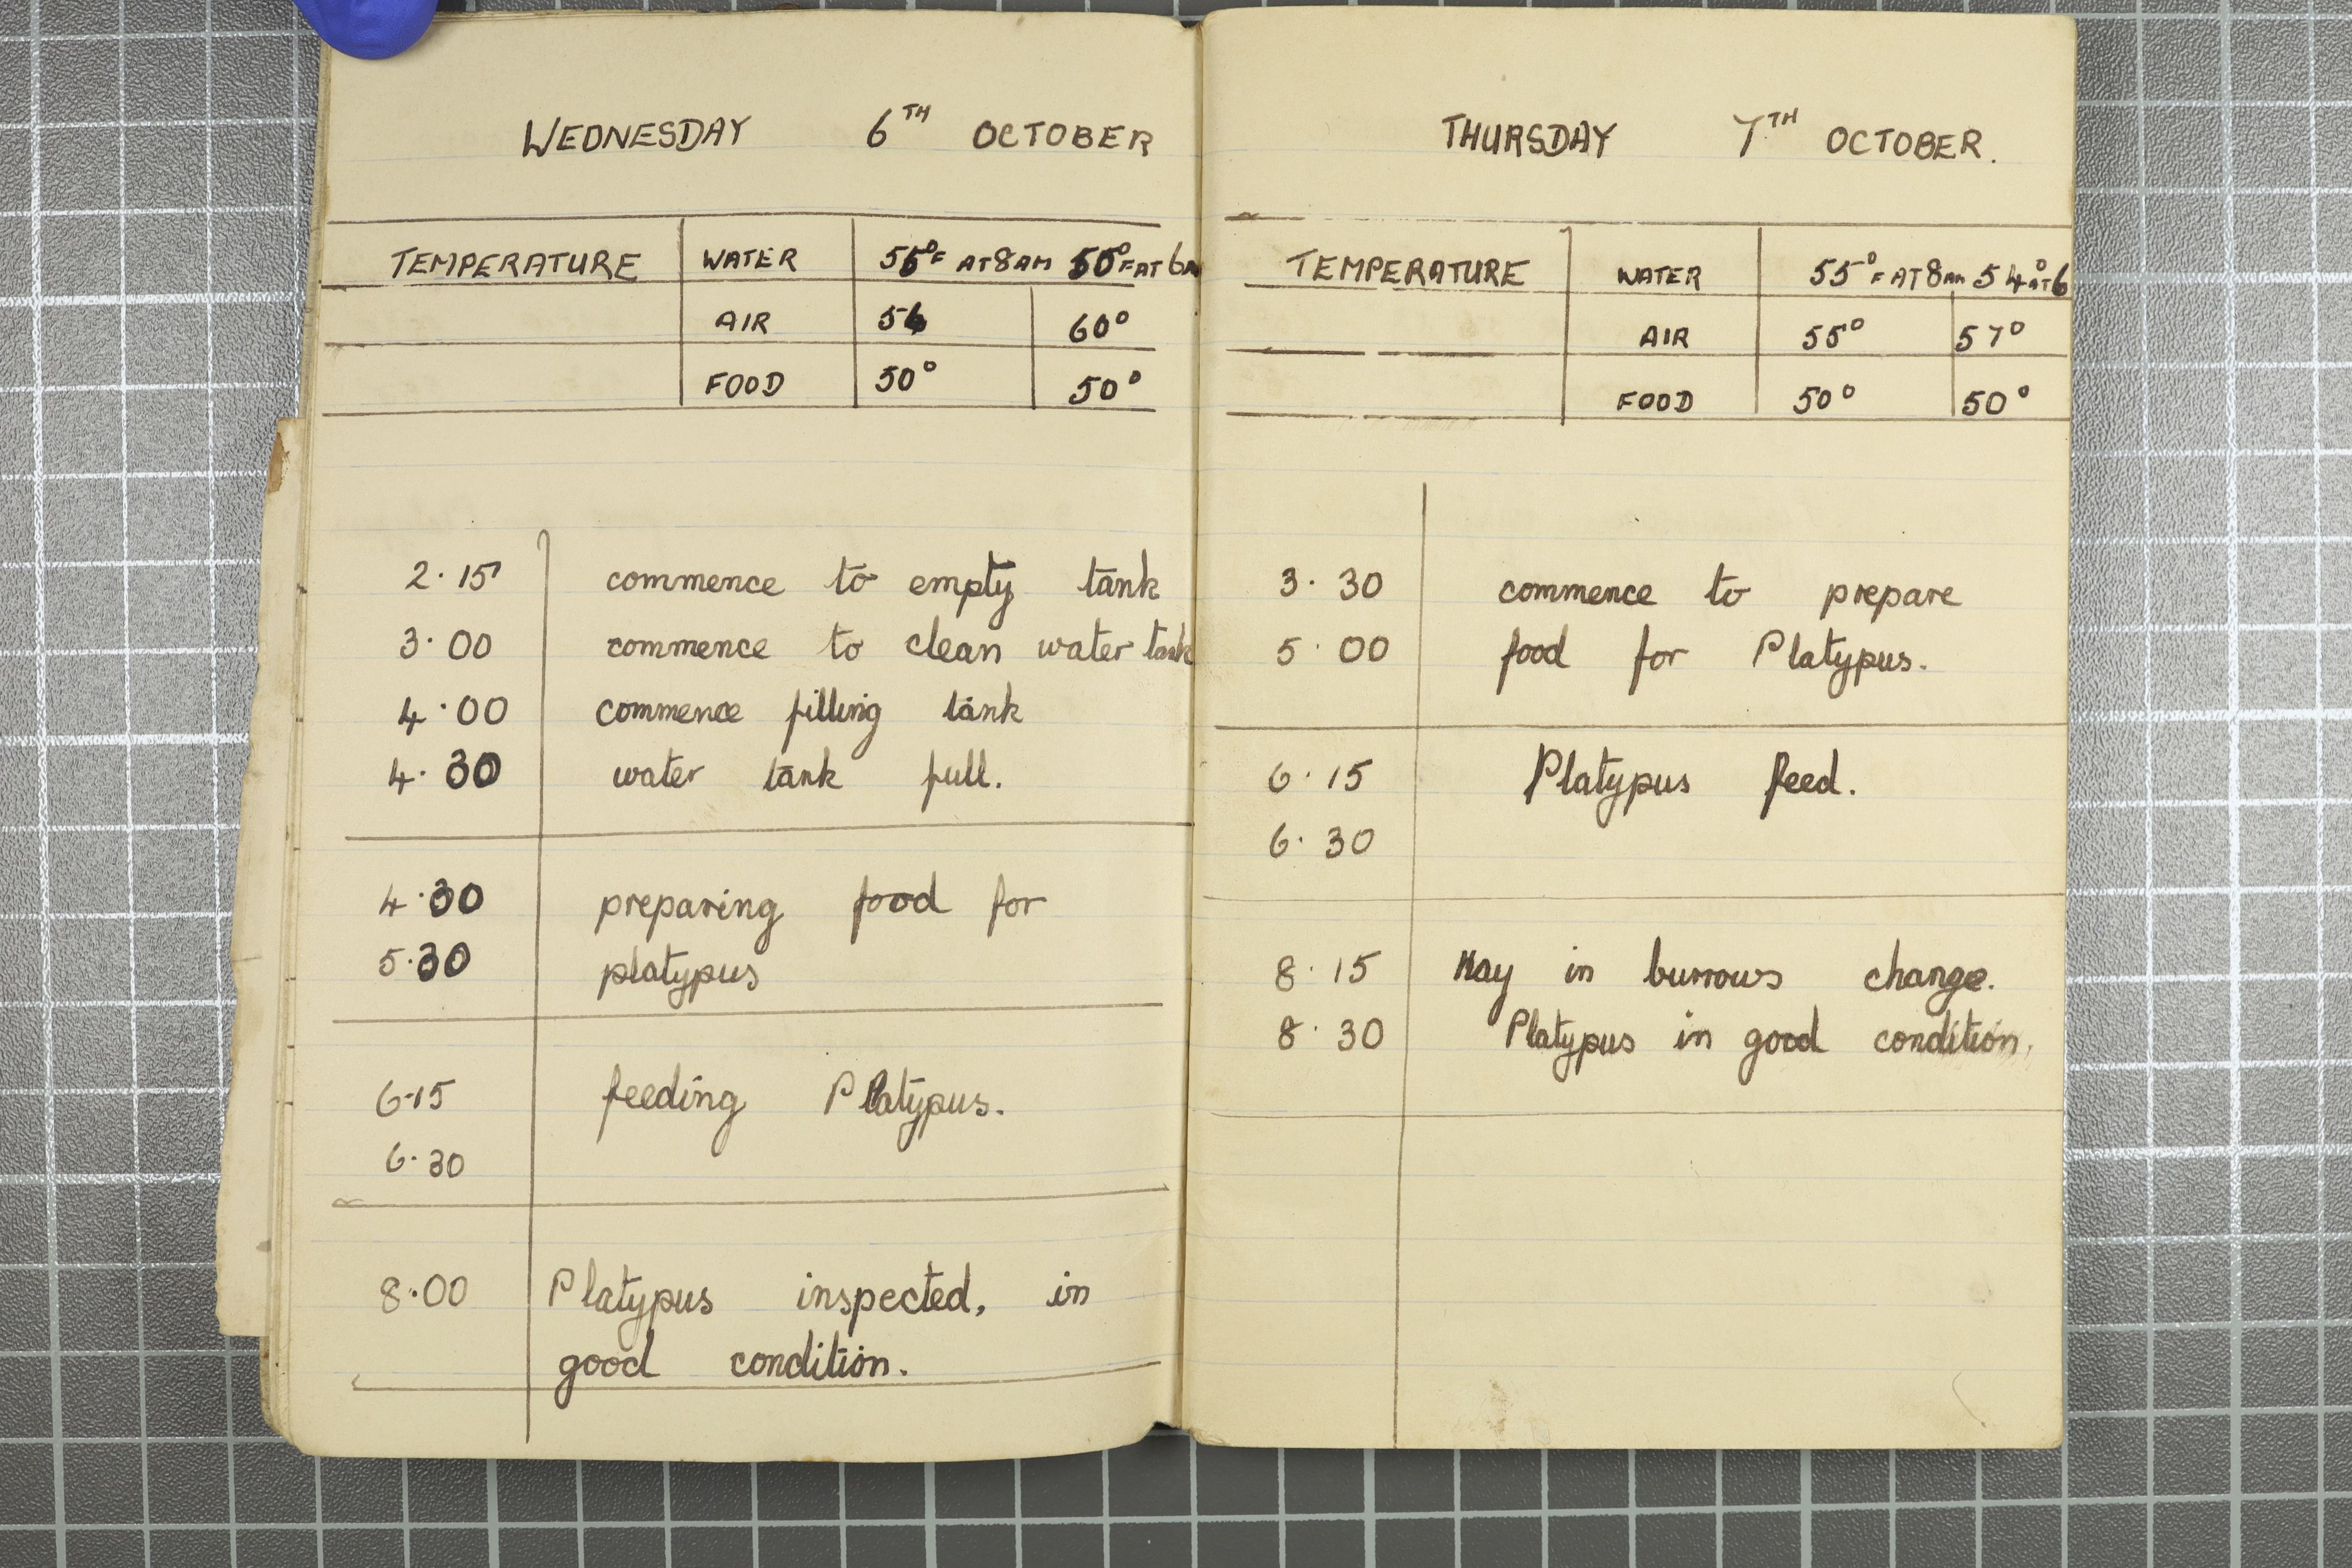 WEDNESDAY 6TH OCTOBER
TEMPERATURE WATER 55°F AT 8AM 50°F AT 6
AIR 56 60°
FOOD 50° 50°
2.15 commence to empty tank
3.00 commence to clean water tank
4.00 commence filling tank
4.30 water tank full.
4.30 preparing food for
5.30 platypus
6.15 feeding Platypus.
6.30
8.00 Platypus inspected, in
good condition.
THURSDAY 7TH OCTOBER.
TEMPERATURE WATER 55°F AT 8AM 54° AT 6
AIR 55° 57°
FOOD 50° 50°
3.30 commence to prepare
5.00 food for Platypus.
6.15 Platypus feed.
6.30
8.15 Hay in burrows change.
8.30 Platypus in good condition.